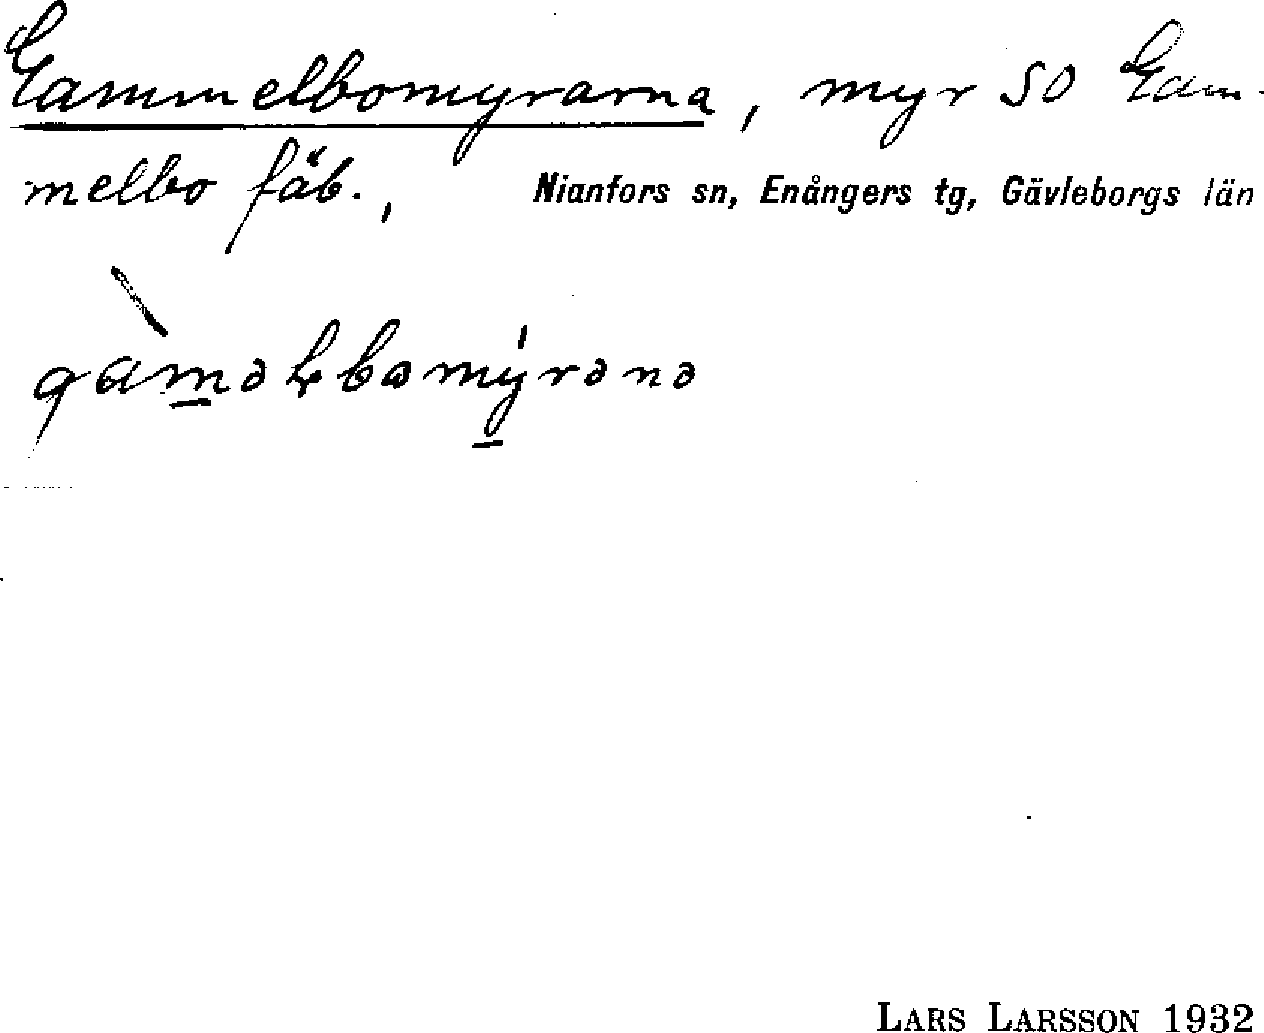 Gammelbomyrarna, myr SO Gam-
melbo fäb., Nianfors sn, Enångers tg, Gävleborgs län
LARS LARSSON 1932